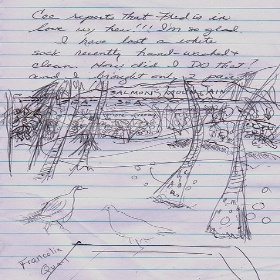 Cee reports that Fred is in
love w/ her!!! I'm so glad.
I have lost a white
sock recently hand-washed &
clean. How did I DO that?
and I brought only 2 pair
SALMON
Francolin
Quail